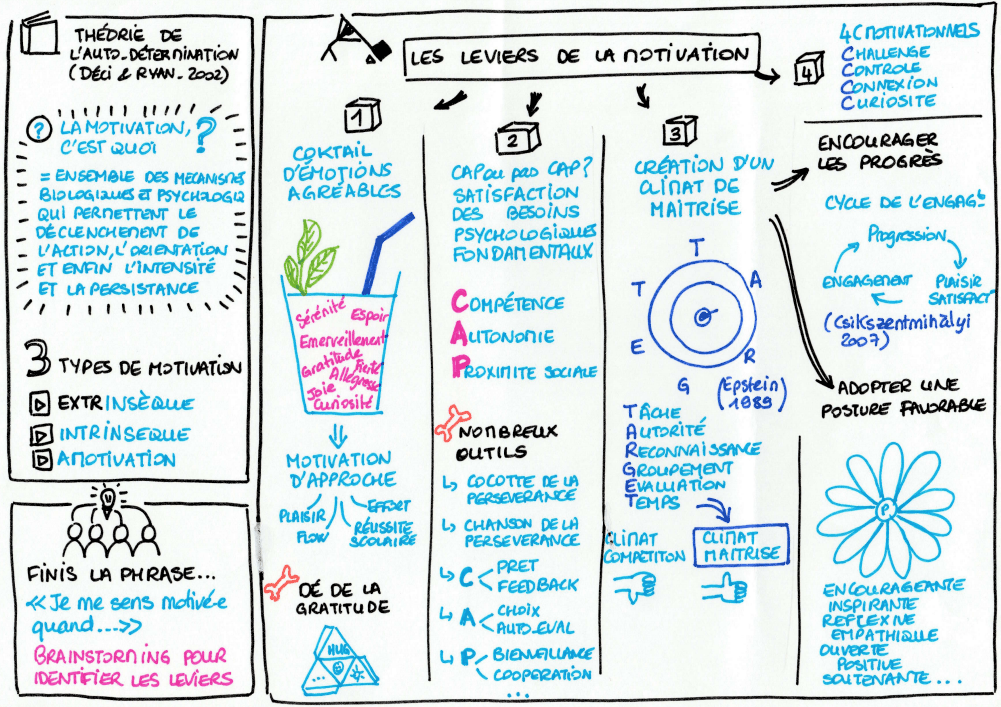 THÉORIE DE
L'AUTO-DÉTERMINATION
(DÉCI & RYAN-2002)
? LA MOTIVATION,
C'EST QUOI ?
= ENSEMBLE DES MECANISMES
BIOLOGIQUES ET PSYCHOLOGIQ
QUI PERMETTENT LE
DÉCLENCHEMENT DE
L'ACTION, L'ORIENTATION
ET ENFIN L'INTENSITÉ
ET LA PERSISTANCE
3 TYPES DE MOTIVATION
EXTRINSÈQUE
INTRINSEQUE
AMOTIVATION
FINIS LA PHRASE...
<<Je me sens motivé·e
quand...>>
BRAINSTORMING POUR
IDENTIFIER LES LEVIERS
LES LEVIERS DE LA MOTIVATION
1
COKTAIL
D'ÉMOTIONS
AGREABLES
Sérénité
Espoir
Emerveillement
Gratitude
Fierté
Allégresse
Joie
Curiosité
MOTIVATION
D'APPROCHE
PLAISIR
FLOW
EFFORT
RÉUSSITE
SCOLAIRE
DÉ DE LA
GRATITUDE
HUG
...
2
CAP ou pas CAP?
SATISFACTION
DES BESOINS
PSYCHOLOGIQUES
FONDAMENTAUX
COMPÉTENCE
AUTONOMIE
PROXIMITE SOCIALE
NOMBREUX
OUTILS
COCOTTE DE LA
PERSEVERANCE
CHANSON DE LA
PERSEVERANCE
C < PRET
FEEDBACK
A < CHOIX
AUTO-EVAL
P < BIENVEILLANCE
COOPERATION
...
3
CRÉATION D'UN
CLIMAT DE
MAITRISE
T
A
R
G
E
T
(Epstein)
1989)
TÂCHE
AUTORITÉ
RECONNAISSANCE
GROUPEMENT
EVALUATION
TEMPS
CLIMAT
COMPETITION
CLIMAT
MAITRISE
4
4C MOTIVATIONNELS
CHALLENGE
CONTROLE
CONNEXION
CURIOSITE
ENCOURAGER
LES PROGRÈS
CYCLE DE L'ENGAGt
Progression
ENGAGEMENT
PLAISIR
SATISFACT°
(Csikszentmihàlyi
2007)
ADOPTER UNE
POSTURE FAVORABLE
P
ENCOURAGEANTE
INSPIRANTE
REFLEXIVE
EMPATHIQUE
OUVERTE
POSITIVE
SOUTENANTE...